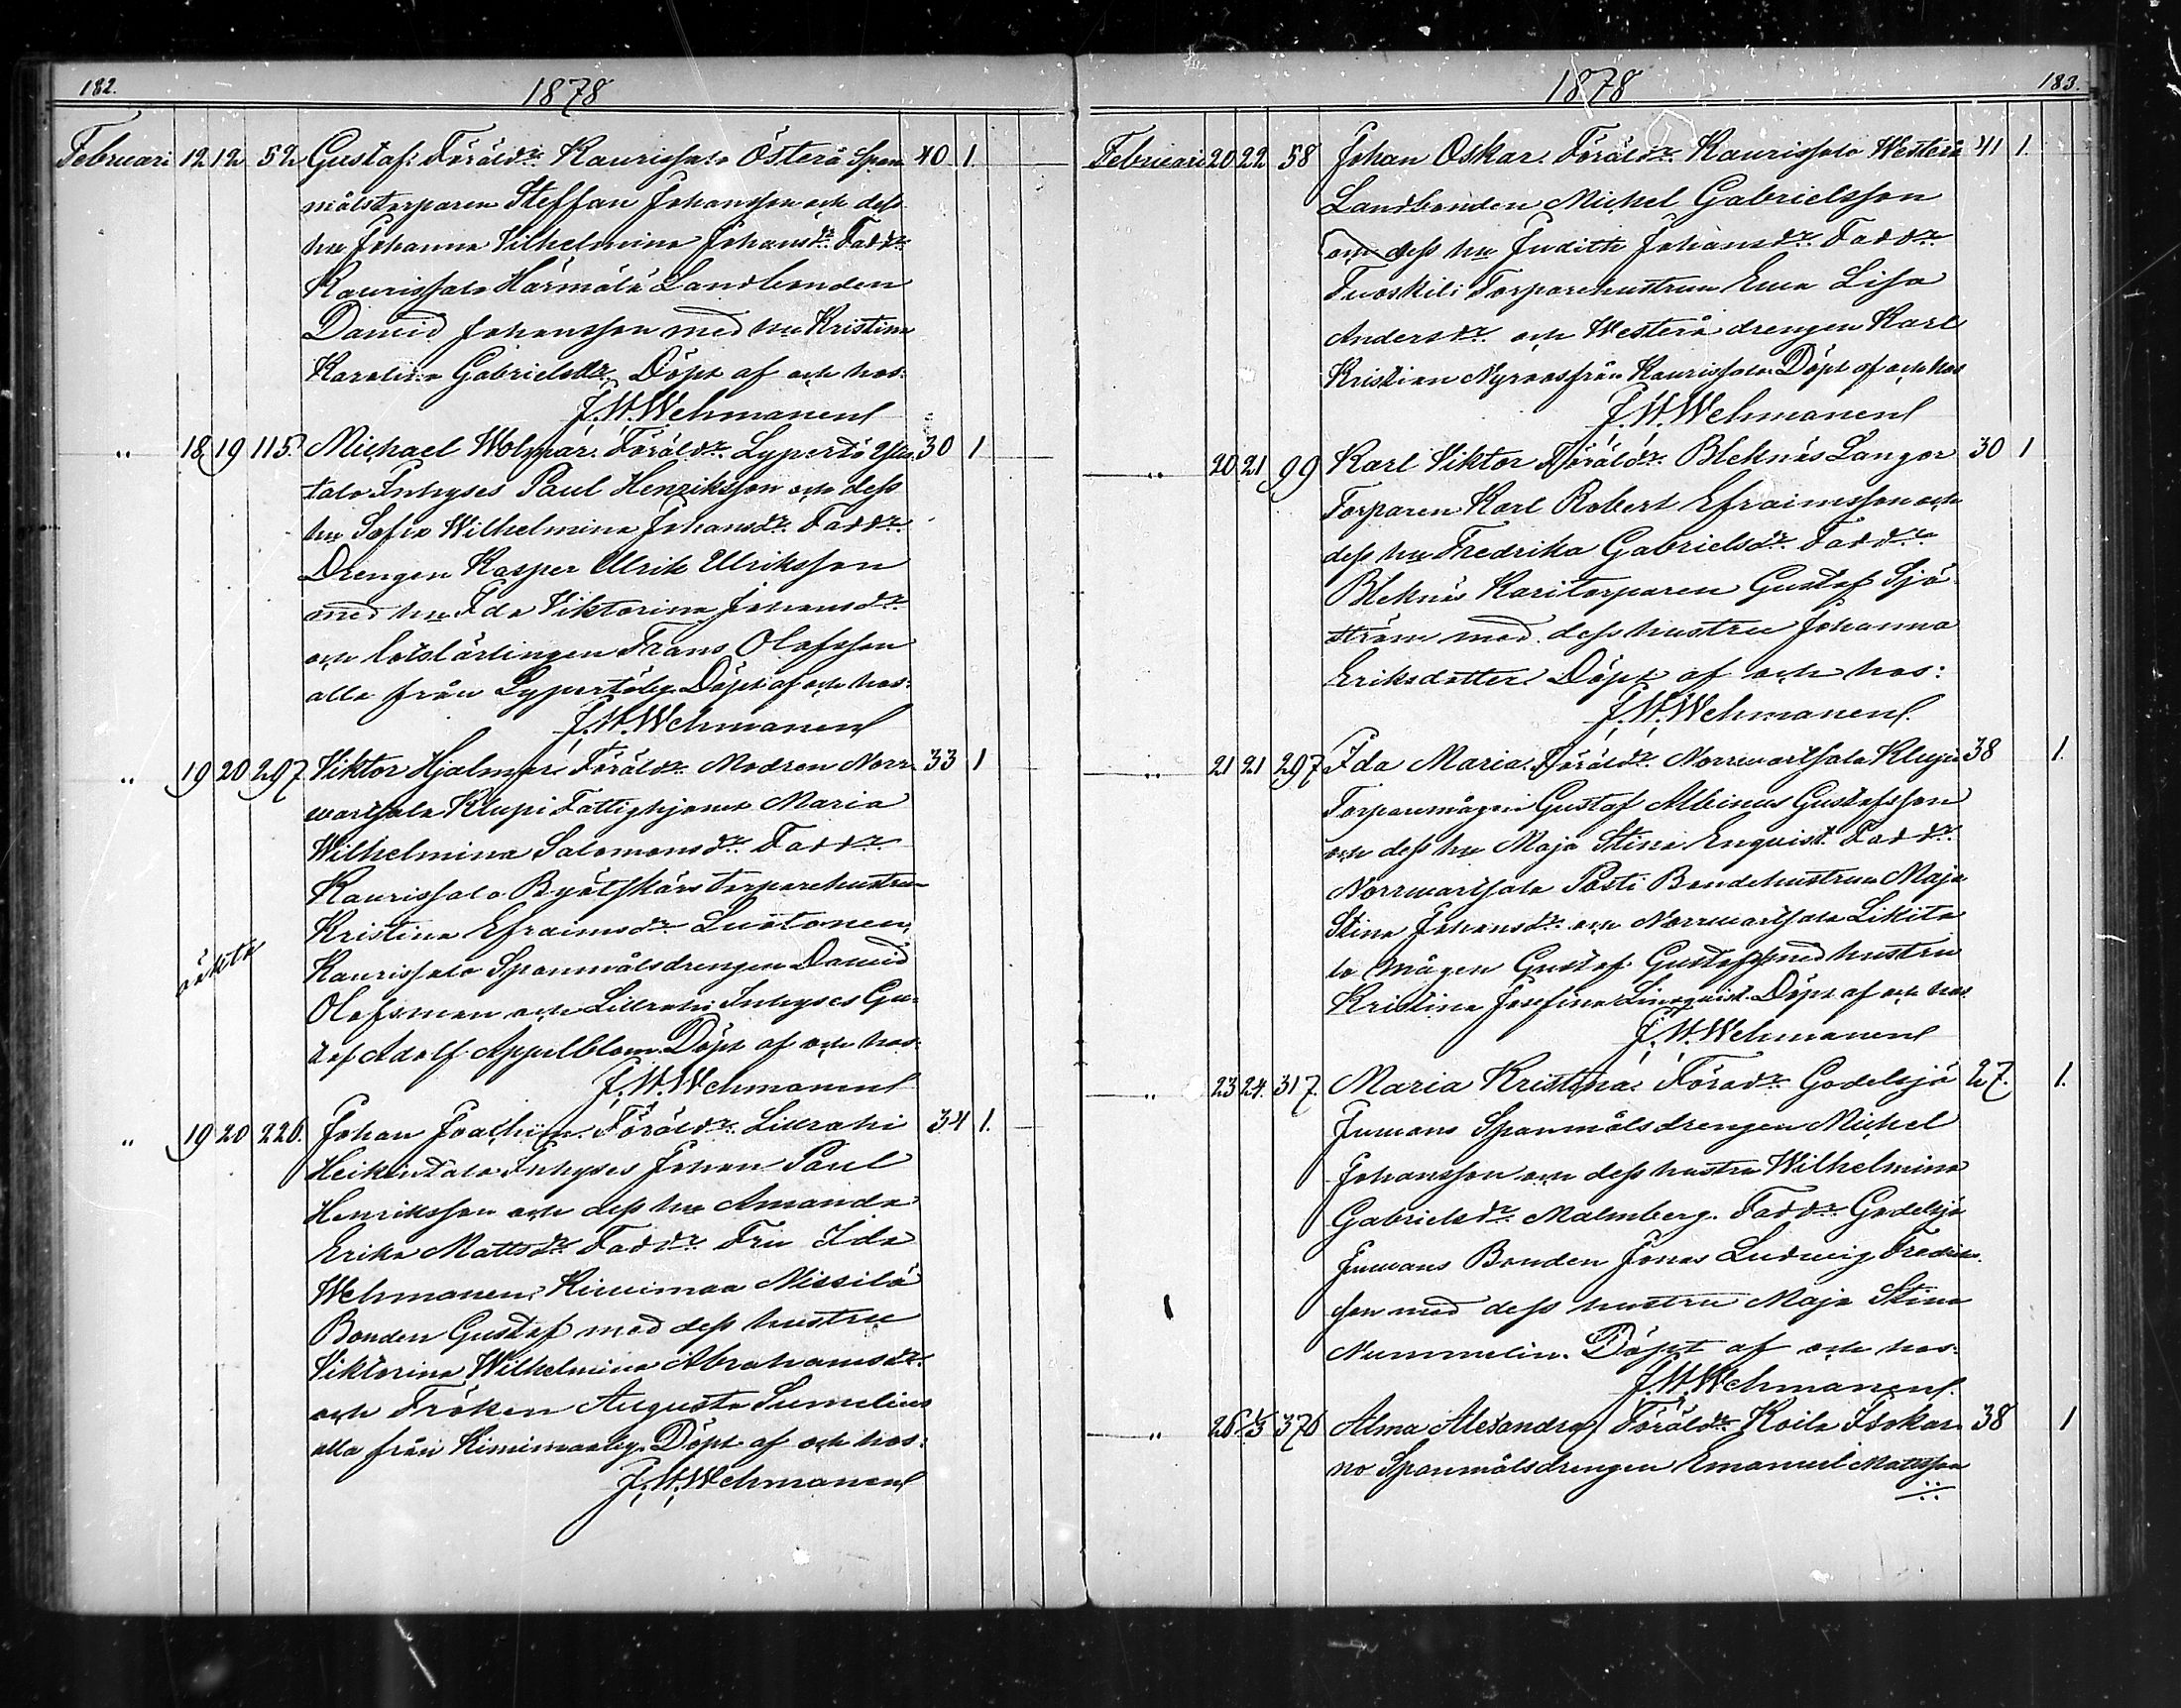 182.
1878
Februari 12 12 52 Gustaf: Föräldr. Kaurissalo Österå Span 40 1.
målstorparen Steffan Johansson och dess
hu Johanna Vilhelmina Johansdr. Faddr.
Kaurissalo Härmälä Landbonden
David Johansson med hu Kristina
Karolina Gabrielsdr. Döpt af och hos:
J. W. Wehmanen
" 18 19 115. Michael Wolmar. Föräldr. Lypertö Yli 30 1
talo Inhyses Paul Henriksson och dess
hu Sofia Wilhelmina Johansdr. Faddr.
Drengen Kasper Ulrik Ulriksson
med hu Ida Viktorina Johansdr.
och lotslärlingen Frans Olofsson
alla från Lypertöby. Döpt af och hos:
J. W. Wehmanen
" 19 20 297 Viktor Hjalmar. Föräldr. Modren Norr 33 1
wartsala Klupi Fattighjonet Maria
Wilhelmina Salomonsdr. Faddr.
Kaurissalo Byölskärs torparehustrun
Kristina Efraimsdr. Luotonen,
oäkta
Kaurissalo Spanmålsdrengen David
Olofsman och Lillrahi Inhyses Gu
staf Adolf Appelblom. Döpt af och hos:
J. W. Wehmanen
" 19 20 226. Johan Joachim. Föräldr. Lillrahi 34 1.
Heikintalo Inhyses Johan Paul
Henriksson och dess hu Amanda
Erika Mattsdr. Faddr. Fru Ida
Wehmanen, Kiwimaa Missilä
Bonden Gustaf med dess hustru
Viktorina Wilhelmina Abrahamsdr.
och Fröken Augusta Sumelius
alla från Kiwimaaby. Döpt af och hos:
J. W. Wehmanen
1878
183.
Februari 20 22 58 Johan Oskar. Föräldr. Kaurissalo Westerå 41 1.
Landbonden Michel Gabrielsson
och dess hu Judith Johansdr. Faddr.
Torparehustrun Ewa Lisa
Andersdr. och Westerå drengen Karl
Kristian Nyroos från Kaurissalo. Döpt af och hos
J. W. Wehmanen
" 20 21 99 Karl Viktor. Föräldr. Bleknäs Långor 30 1
Torparen Karl Robert Efraimsson och
dess hu Fredrika Gabrielsdr. Faddr.
Bleknäs Karitorparen Gustaf Sjö
ström med dess hustru Johanna
Eriksdotter. Döpt af och hos:
J. W. Wehmanen
" 21 21 297 Ida Maria. Föräldr. Norrwartsala Klupi 38 1.
Torparemågen Gustaf Albinus Gustafsson
och dess hu Maja Stina Enqvist. Faddr.
Norrwartsala Posti Bondehustrun Maja
Stina Johansdr. och Norrwartsala Likita
lo mågen Gustaf Gustafss med hustru
Kristina Josefina Lindqvist. Döpt af och hos
J. W. Wehmanen
" 23 24. 317. Maria Kristina. Förädr. Godelsjö 27. 1.
Juwans Spanmålsdrengen Michel
Johansson och dess hustru Wilhelmina
Gabrielsdr. Malmberg. Faddr. Godelsjö
Juwans Bonden Jonas Ludwig Fredriks
son med dess hustru Maja Stina
Nummelin. Döpt af och hos:
J. W. Wehmanen
" 26 1/3 376 Alma Alexandra. Föräldr. Koila Isokar 38 1
no Spanmålsdrengen Emanuel Mattsson